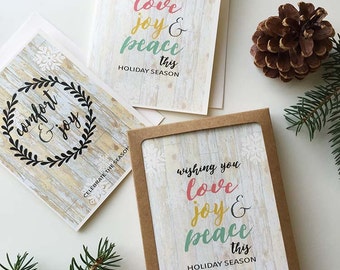 love
joy &
peace
this
HOLIDAY SEASON
comfort
& joy
CELEBRATE THE SEASON
wishing you
love
joy &
peace
this
HOLIDAY SEASON